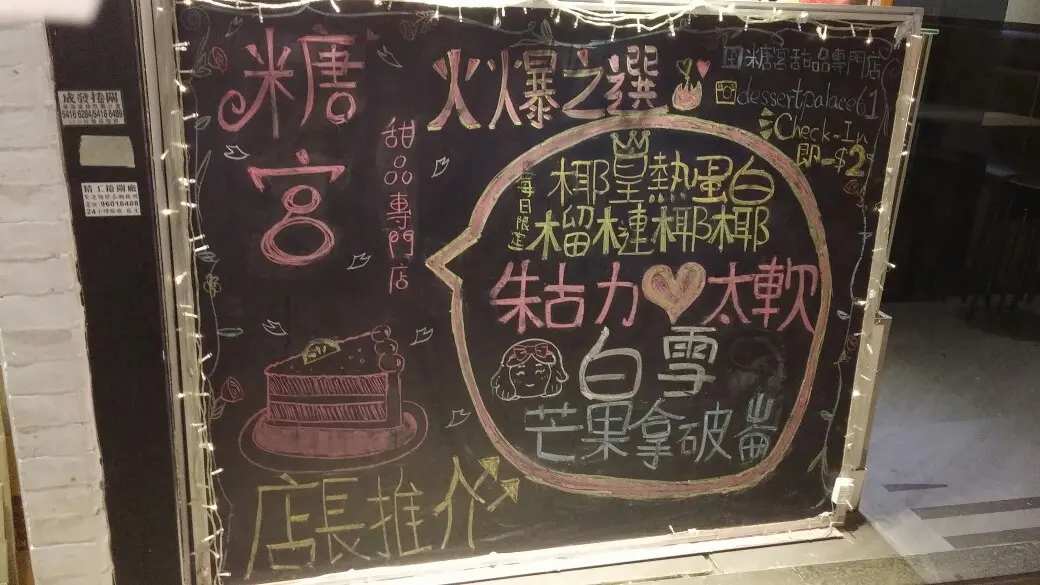 糖宮
甜品專門店
火爆之選
糖宮甜品專門店
dessertpalace61
Check-In
即-$2
每日限定
椰皇熱蛋白
榴槤椰椰
朱古力太軟
白雪
芒果拿破崙
店長推介
成發捲閘
5416 6204/5416 6489
精工捲閘廠
電話 96016408